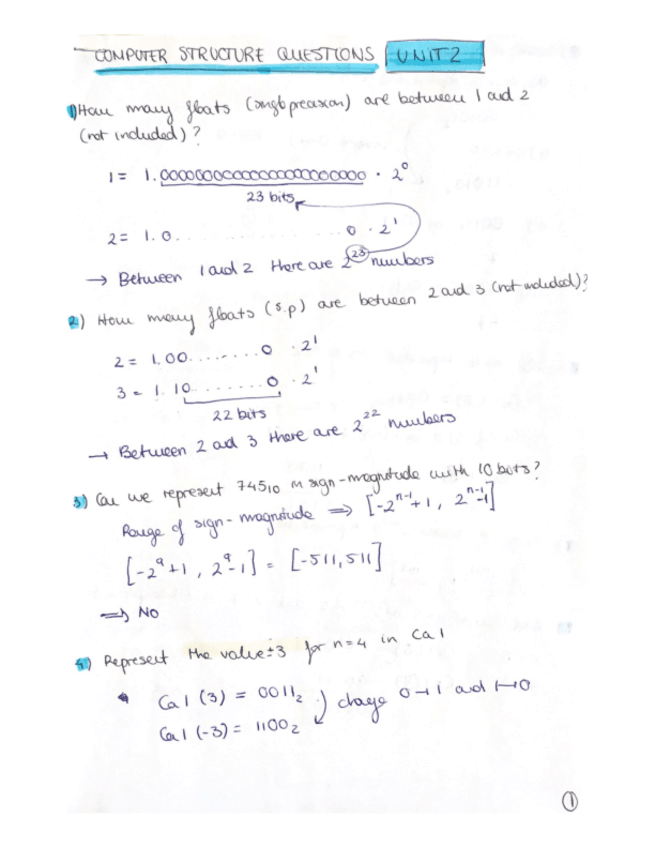 COMPUTER STRUCTURE QUESTIONS UNIT 2
1) How many floats (single precision) are between 1 and 2
(not included)?
1 = 1.00000000000000000000000 · 2^0
23 bits
2 = 1.0..................0 · 2^1
→ Between 1 and 2 there are 2^23 numbers
2) How many floats (s.p) are between 2 and 3 (not included)?
2 = 1.00........0 · 2^1
3 = 1.10........0 · 2^1
22 bits
→ Between 2 and 3 there are 2^22 numbers
3) Can we represent 745_10 in sign-magnitude with 10 bits?
Range of sign-magnitude ⇒ [-2^n-1+1, 2^n-1-1]
[-2^9+1, 2^9-1] = [-511, 511]
⇒ No
4) Represent the value ±3 for n=4 in Ca1
Ca1 (3) = 0011_2 ) change 0→1 and 1→0
Ca1 (-3) = 1100_2
1